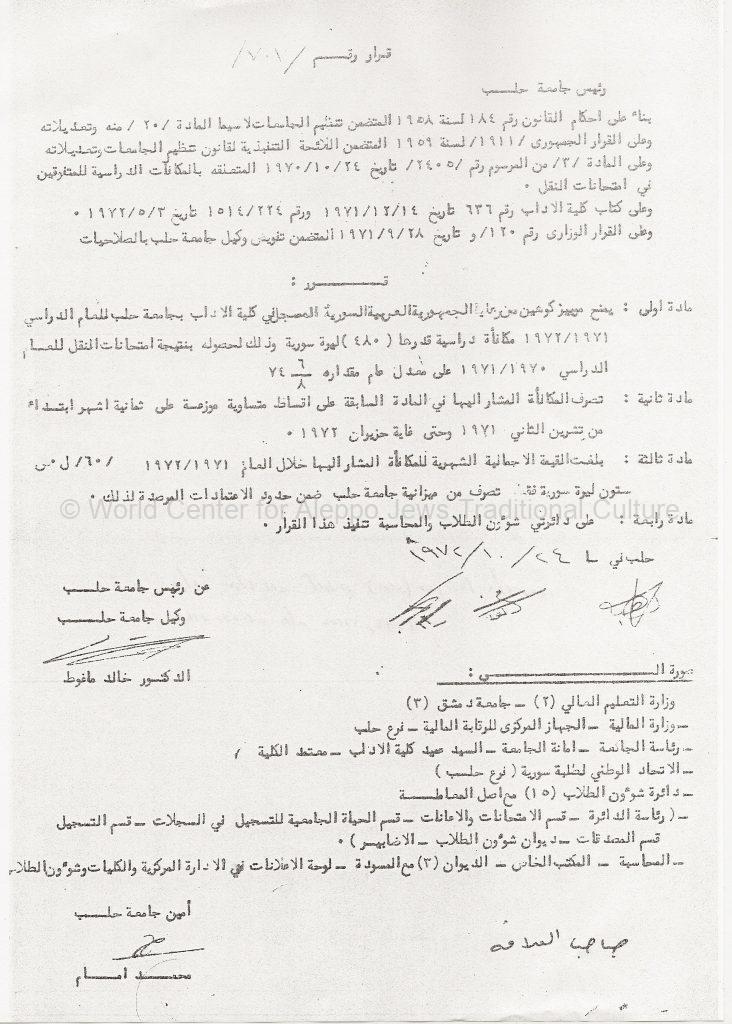 قرار رقم /٧٠١/
رئيس جامعة حلب
بناء على احكام القانون رقم ١٨٤ لسنة ١٩٥٨ المتضمن تنظيم الجامعات لاسيما المادة /٢٠/ منه وتعديلاته
وعلى القرار الجمهوري /١٩١١/ لسنة ١٩٥٩ المتضمن اللائحة التنفيذية لقانون تنظيم الجامعات وتعديلاته
وعلى المادة /٣/ من المرسوم رقم /٢٤٠٥/ تاريخ ١٩٧٠/١٠/٢٤ المتعلقة بالمكافآت الدراسية للمتفوقين
في امتحانات النقل ٠
وعلى كتاب كلية الاداب رقم ٦٣٦ تاريخ ١٩٧١/١٢/١٤ ورقم ١٥١٤/٢٢٤ تاريخ ١٩٧٢/٥/٣ ٠
وعلى القرار الوزاري رقم /١٢٠/و تاريخ ١٩٧١/٩/٢٨ المتضمن تفويض وكيل جامعة حلب بالصلاحيات
قــــرر :
مادة اولى : يمنح كوهين من رعايا الجمهورية العربية السورية المسجل في كلية الاداب بجامعة حلب للعام الدراسي
١٩٧٢/١٩٧١ مكافأة دراسية قدرها (٤٨٠) ليرة سورية وذلك لحصوله بنتيجة امتحانات النقل للعـــام
الدراسي ١٩٧١/١٩٧٠ على معدل عام مقداره ٧٤ ٦/٨
مادة ثانية : تصرف المكافأة المشار اليها في المادة السابقة على اقساط متساوية موزعة على ثمانية اشهر ابتـداء
من تشرين الثاني ١٩٧١ وحتى غاية حزيران ١٩٧٢ ٠
مادة ثالثة : بلغت القيمة الاجمالية الشهرية للمكافأة المشار اليها خلال العام ١٩٧٢/١٩٧١ /٦٠/ ل٠س
ستون ليرة سورية فقط تصرف من ميزانية جامعة حلب ضمن حدود الاعتمادات المرصدة لذلك ٠
© World Center for Aleppo Jews Traditional Culture
مادة رابعة : على دائرتي شؤون الطلاب والمحاسبة تنفيذ هذا القرار ٠
حلب في ١٩٧٢/١٠/٢٤
عن رئيس جامعة حلـــب
وكيل جامعة حلــــب
الدكتـور خالد ماغوط
صورة الــــــــى :
وزارة التعليم العالي (٢) ــ جامعة دمشق (٣)
ــ وزارة المالية ــ الجهاز المركزي للرقابة المالية ــ فرع حلب
ــ رئاسة الجامعة ــ امانة الجامعة ــ السيد عميد كلية الاداب ــ معتمد الكلية
ــ الاتحاد الوطني لطلبة سورية (فرع حلـب)
ــ دائرة شؤون الطلاب (١٥) مع اصل المعاملـــة
ــ (رئاسة الدائرة ــ قسم الامتحانات والاعانات ــ قسم الحياة الجامعية للتسجيل في السجلات ــ قسم التسجيل
قسم المصدقات ــ ديوان شؤون الطلاب ــ الاضابيـر) ٠
ــ المحاسبة ــ المكتب الخاص ــ الديوان (٣) مع المسودة ــ لوحة الاعلانات في الادارة المركزية والكليات وشؤون الطلاب
أمين جامعة حلـــب
محمــد امــام
صاحب العلاقة